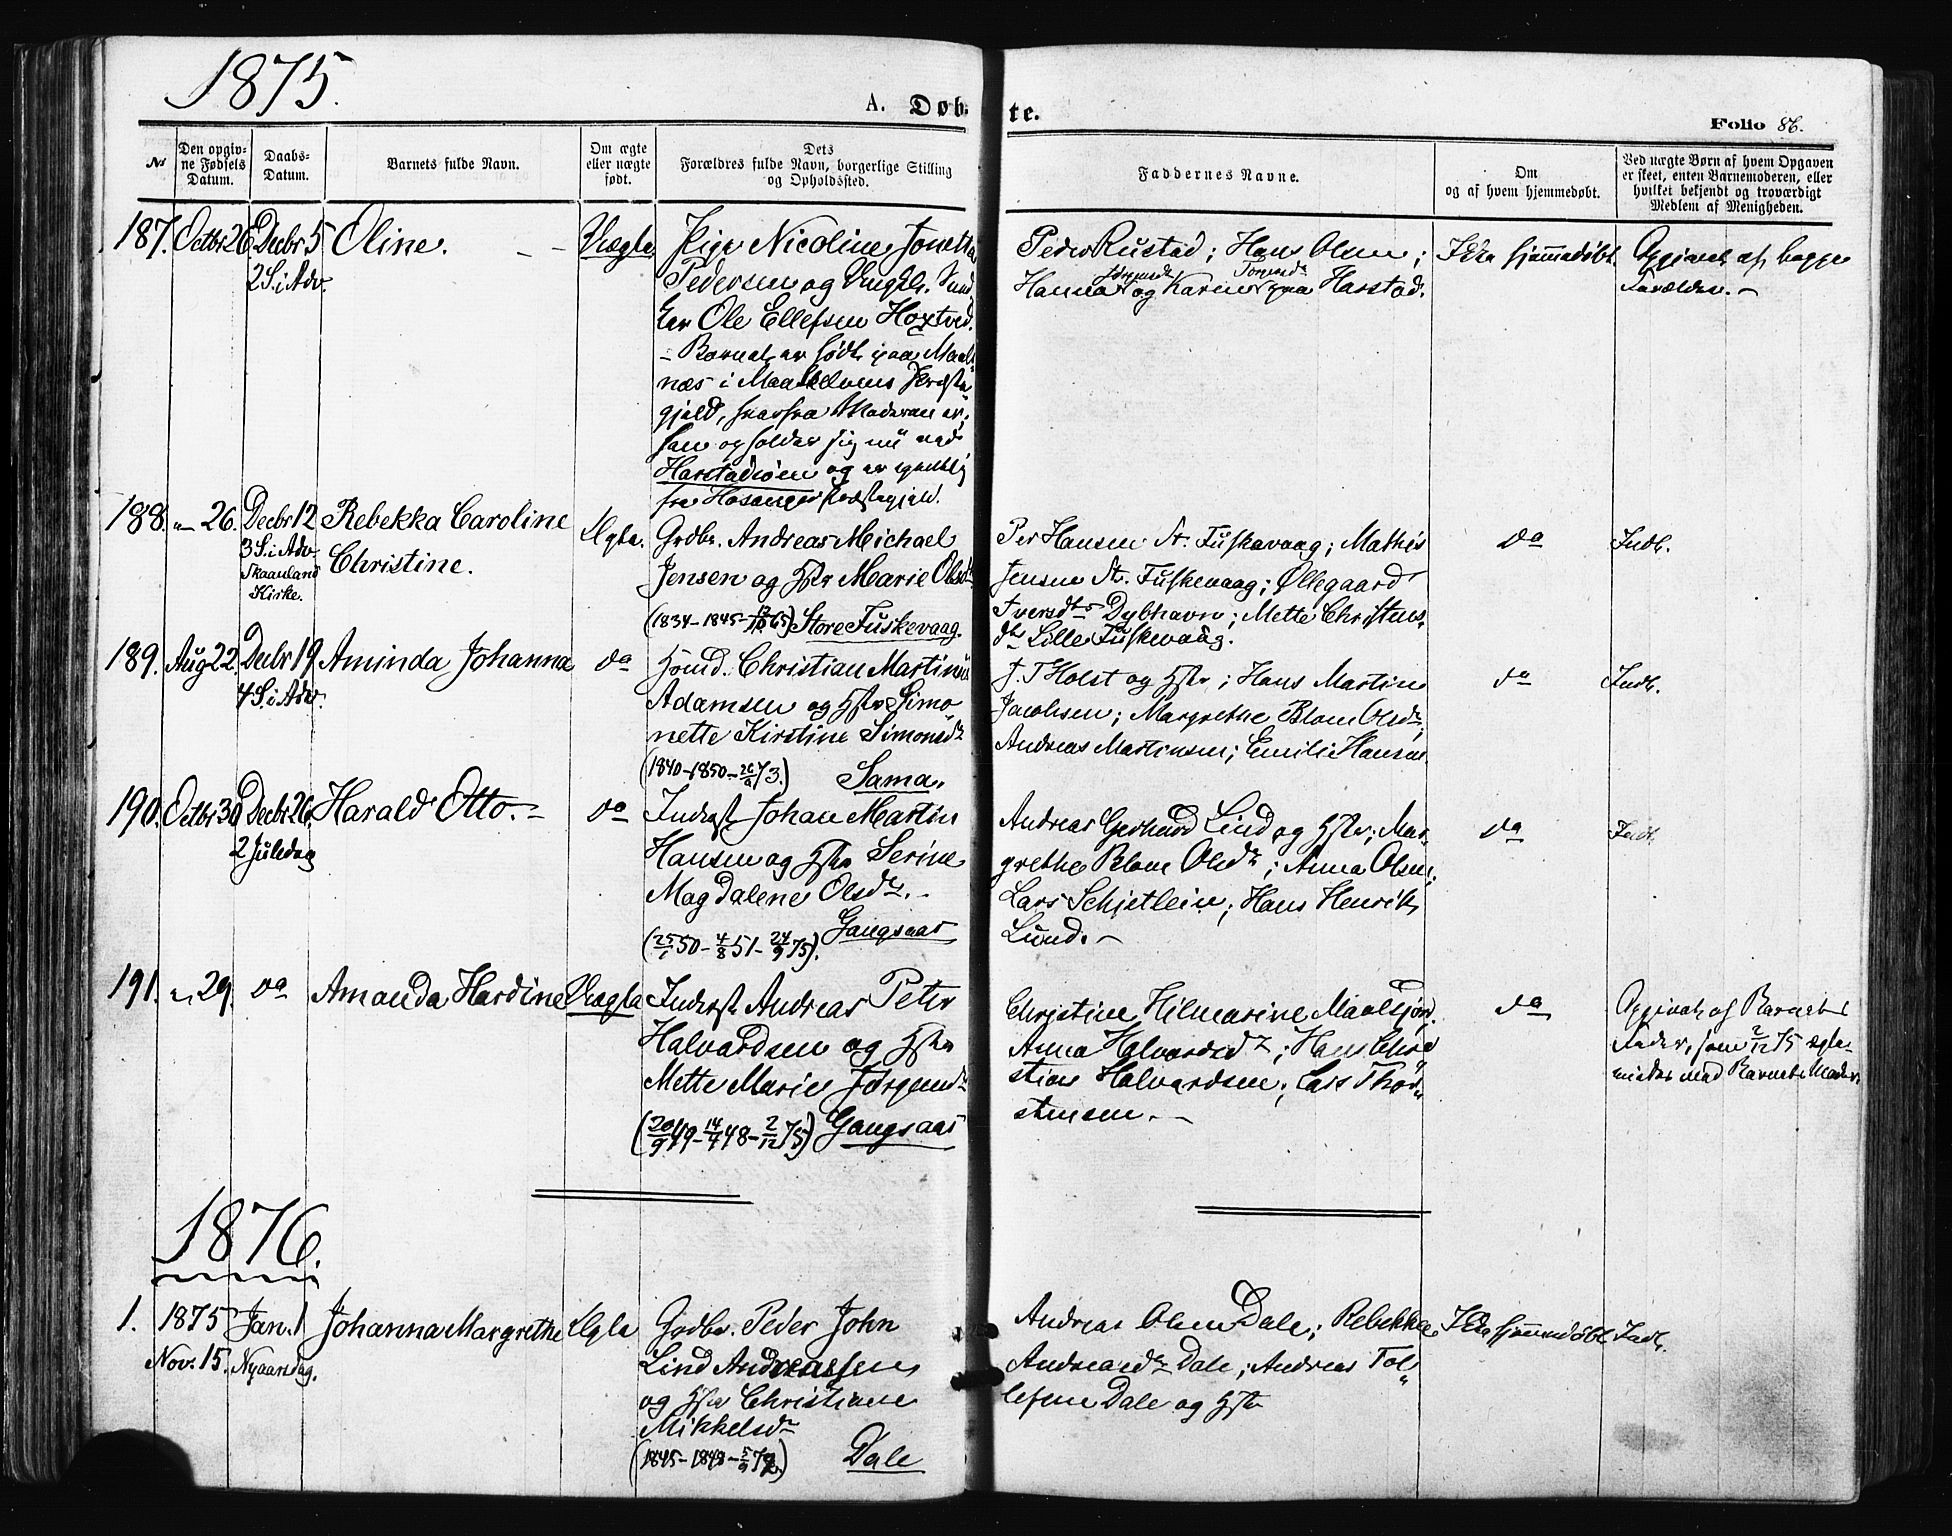 1875.
A. Døbte.
Folio 86.
No
Den opgivne Fødsels Datum.
Daabs-Datum.
Barnets fulde Navn.
Om ægte eller nægte født.
Dets Forældres fulde Navn, borgerlige Stilling og Opholdssted.
Faddernes Navne.
Om og af hvem hjemmedøbt.
Ved nægte Børn af hvem Opgaven er skeet, enten Barnemoderen, eller hvilket bekjendt og troværdigt Medlem af Menigheden.
187. Octbr 26 Decbr 5
2 S. i Adv.
Oline. –
Uægte
Pige Nicoline Jonetta
Pedersen og Ungk.
Ole Ellefsen Hoxtved.
– Barnet er født paa Maals
næs i Maalselvens Præste
gjeld, hvorfra Moderen er,
han opholder sig nu ved
Harstadsøen og er egentlig
fra Hosanger Præstegjeld.
Peder Rustad; Hans Olsen;
Hanna Jørgensdr og Karen Torgersdr paa Harstad.
Ikke hjemmedøbt.
Opgivet af begge
Forældre. –
188. " 26. Decbr 12
3 S. i Adv.
Skaanland
Kirke.
Rebekka Caroline
Christine.
Ægte.
Grdbr. Andreas Michael
Jensen og Hstr Marie Olsdr
(1834–1845– 65) Store Fuskevaag.
Per Hansen St. Fuskevaag; Mathis
Jensen St. Fuskevaag; Øllegaard
Iversdtr Dybhavn; Mette Christens-
dtr Lille Fuskevaag.
do
Indb.
189. Aug 22. Decbr 19
4 S. i Adv.
Aminda Johanna
do
Hsmd. Christian Martinus
Adamsen og Hstr Simo
nette Kirstine Simonsdr
(1840–1850–26/9 73.) Sama.
J. T Holst og Hstr; Hans Martin
Jacobsen; Margrethe Blom Olsdr;
Andreas Martinsen; Emilie Hansen
do
Indb.
190. Octbr 30 Decbr 26.
2 Juledag
Harald Otto. –
do
Inderst Johan Martin
Hansen og Hstr Serine
Magdalene Olsdr. –
(25/1 50–4/8 51–24/9 75). Gangsaas
Andreas Gerhard Lind og Hstr; Mar-
grethe Blom Olsdr; Anna Olsen;
Lars Schjetlein; Hans Henrik
Lund. –
do
Indb.
191. " 29. do
Amanda Hardine
Uægte
Inderst Andreas Peter
Halvardsen og Hstr
Mette Marie Jørgensdr
(20/9 49–14/7 48–2/12 75) Gangsaas
Christine Hilmarine Maalsjord.
Anna Halvardsdr; Hans Chri
stian Halvardsen; Lars Thor
stensen. –
do
Opgivet af Barnets
Fader, som 2/12 75 ægte-
viedes med Barnets Moder.
1876.
1. 1875 Jan. 1
Nov. 15. Nyaarsdag.
Johanna Margrethe
Ægte
Grdbr. Peder John
Lind Andreassen
og Hstr Christiane
Mikkelsdr
(1845–1848–5/9 72) Dale
Andreas Olsen Dale; Rebekka
Andreasdr Dale; Andreas Tol
lefsen Dale og Hstr
Ikke hjemmedøbt
Indb.